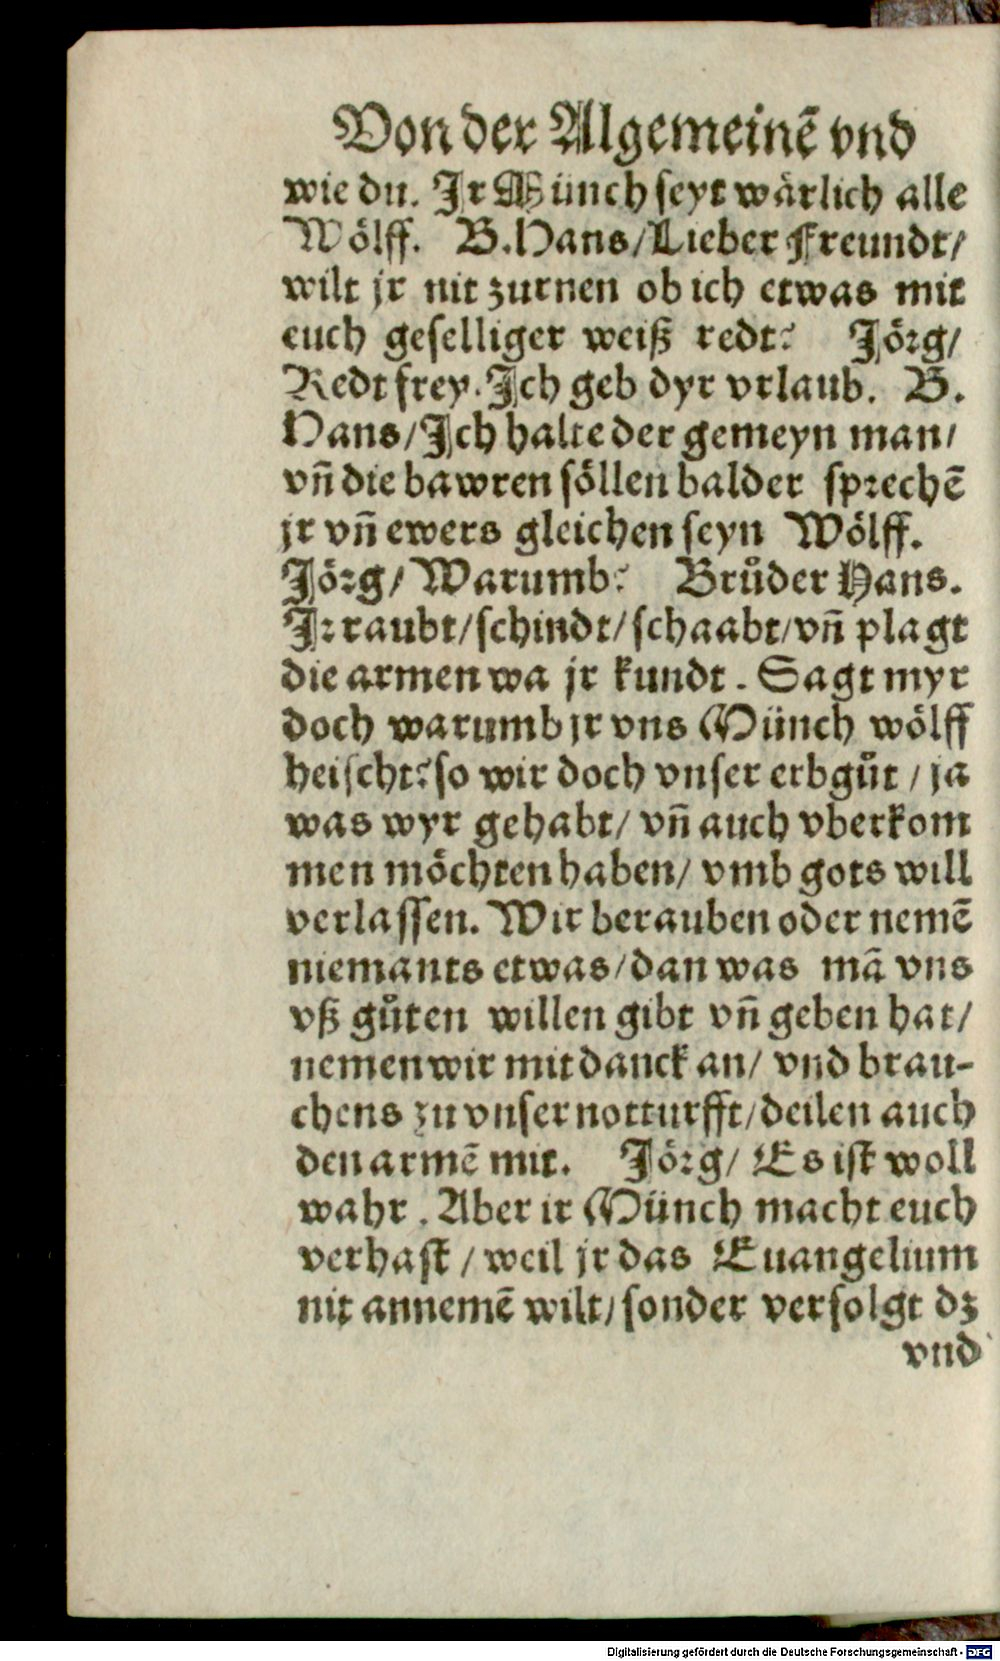 Von der Algemeinē vnd
wie du. Jr Münch seyt wärlich alle
Wölff. B. Hans/ Lieber Freundt/
wilt jr nit zurnen ob ich etwas mit
euch geselliger weiß redt? Jörg/
Redt frey. Jch geb dyr vrlaub. B.
Hans/ Jch halte der gemeyn man/
vñ die bawren söllen balder sprechē
jr vñ ewers gleichen seyn Wölff.
Jörg/ Warumb? Brůder Hans.
Jr raubt/ schindt/ schaabt/ vñ plagt
die armen wa jr kundt. Sagt myr
doch warumb jr vns Münch wölff
heischt? so wir doch vnser erbgůt / ja
was wyr gehabt/ vñ auch vberkom
men möchten haben/ vmb gots will
verlassen. Wir berauben oder nemē
niemants etwas/ dan was mā vns
vß gůten willen gibt vñ geben hat/
nemen wir mit danck an/ vnd brau-
chens zu vnser notturfft/ deilen auch
den armē mit. Jörg/ Es ist woll
wahr. Aber ir Münch macht euch
verhast / weil jr das Euangelium
nit annemē wilt/ sonder verfolgt dz
vnd
Digitalisierung gefördert durch die Deutsche Forschungsgemeinschaft - DFG